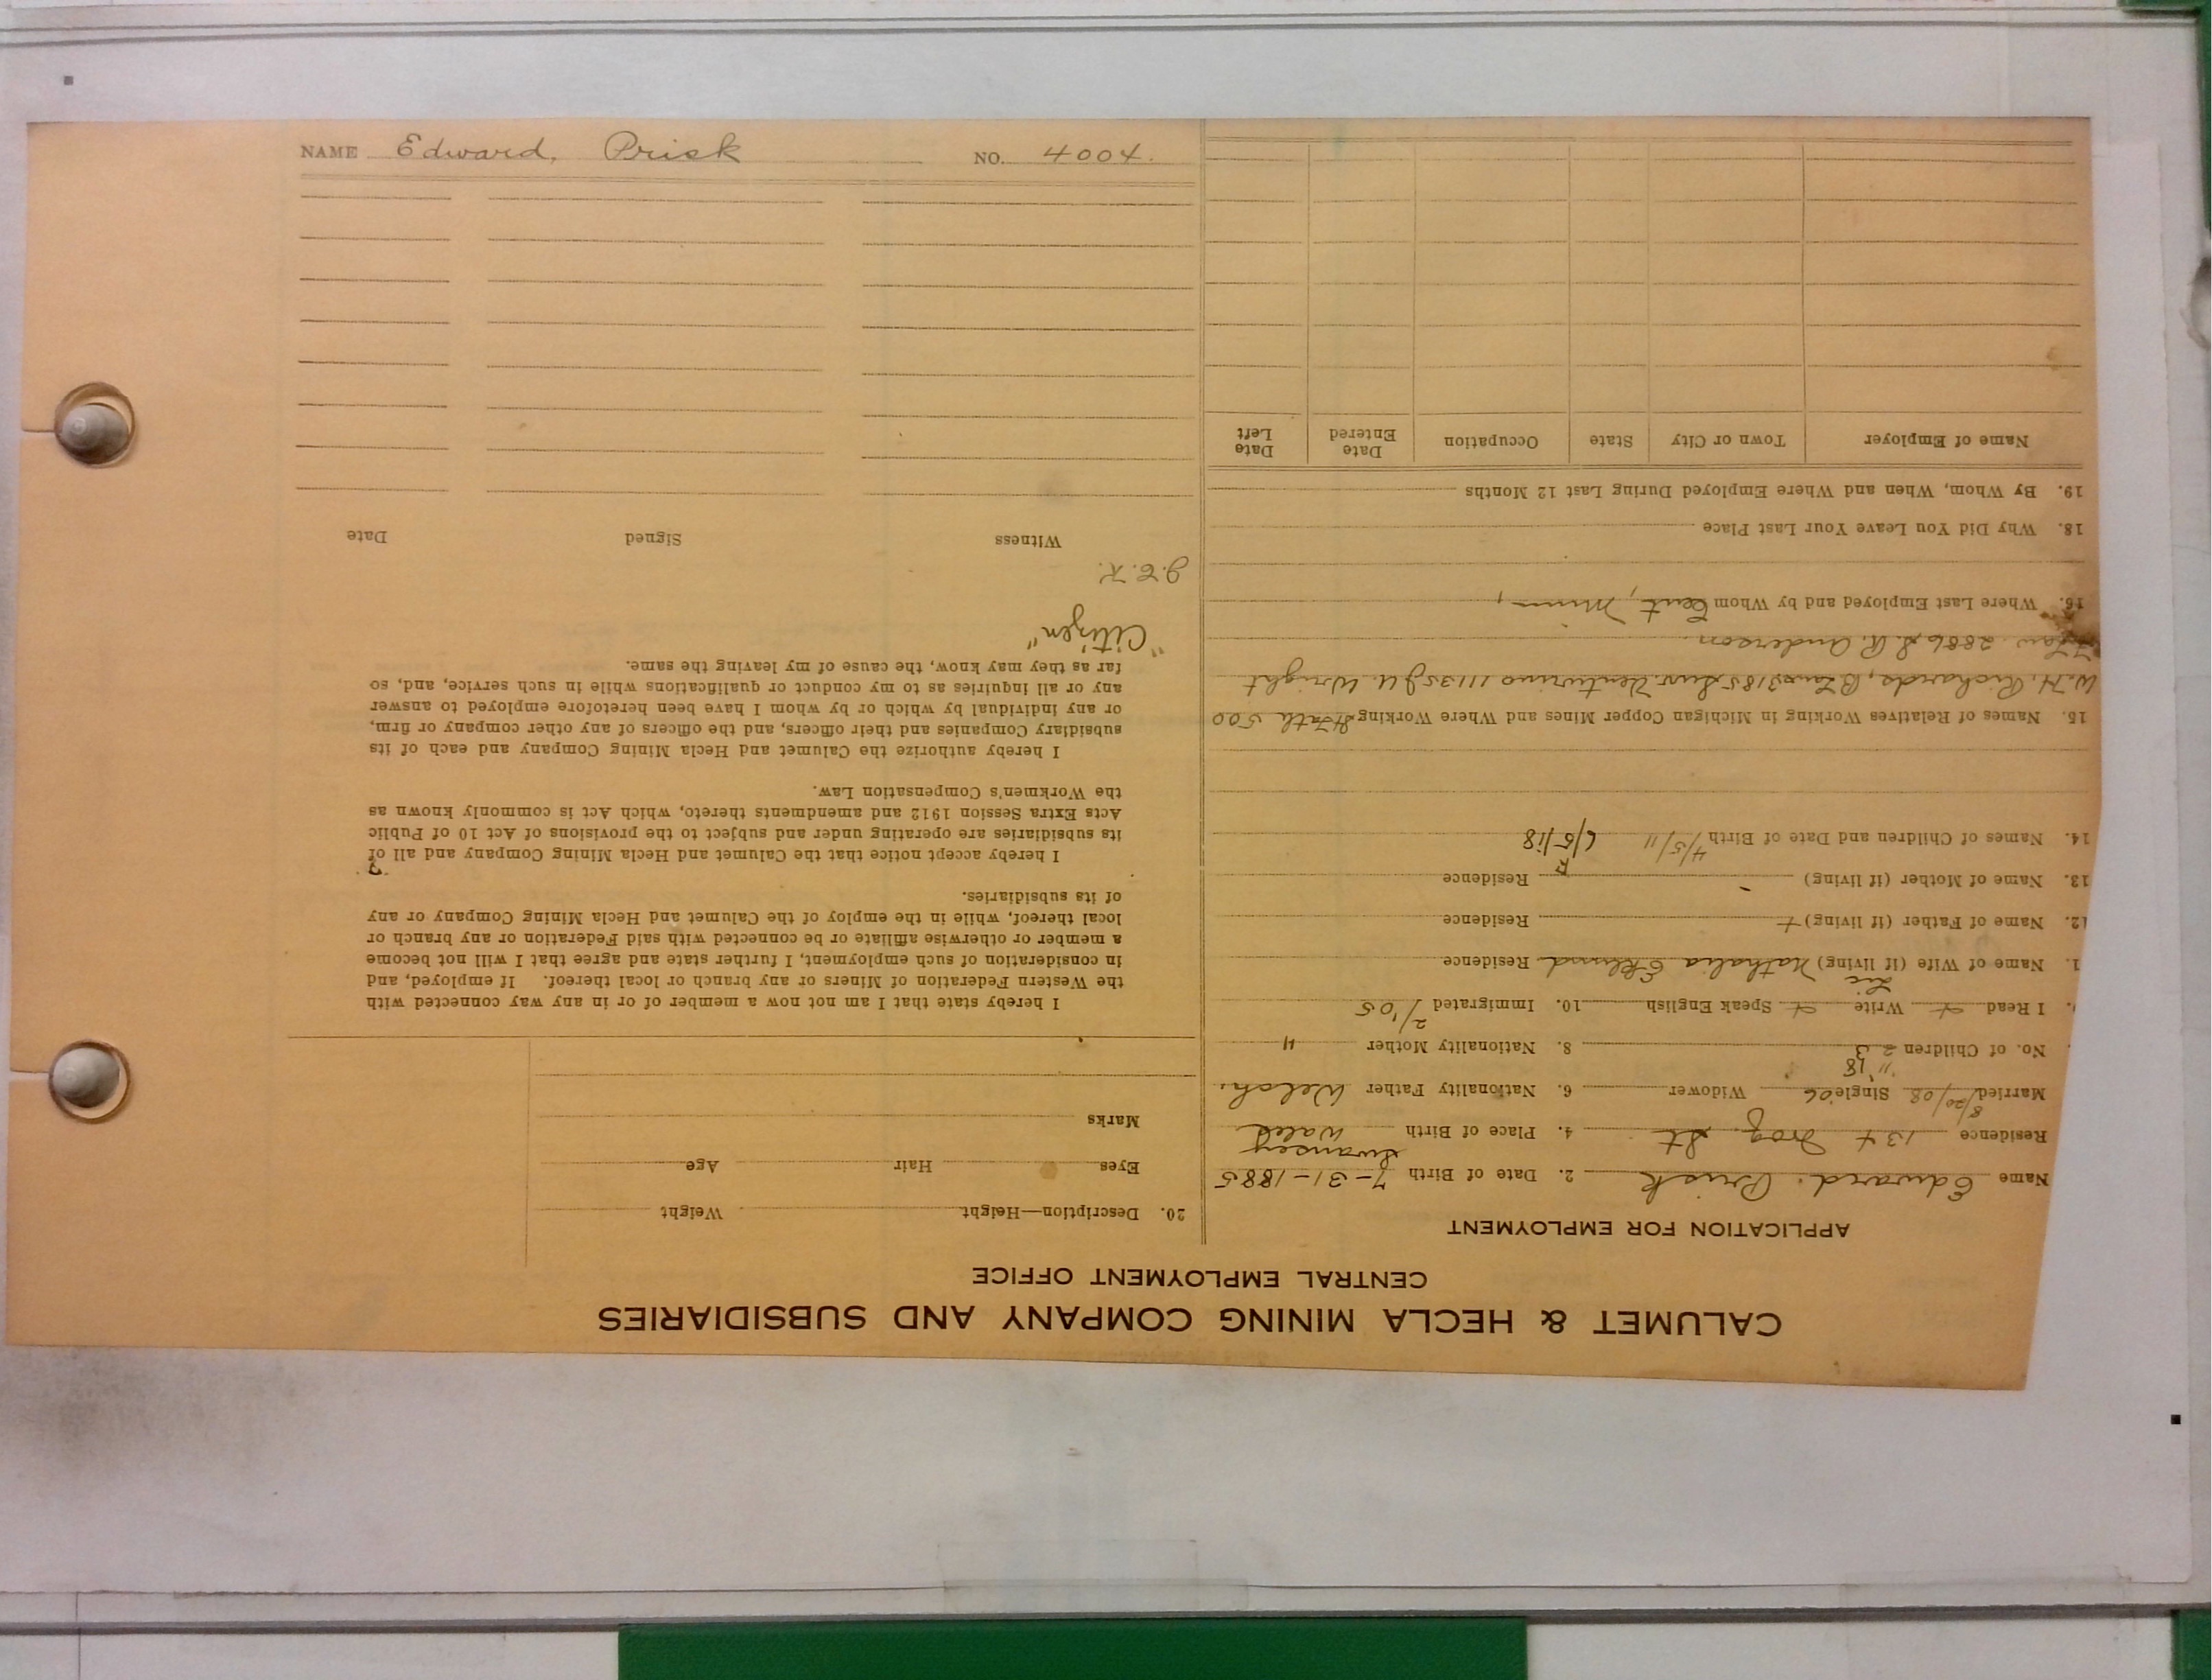 CALUMET & HECLA MINING COMPANY AND SUBSIDIARIES
CENTRAL EMPLOYMENT OFFICE
APPLICATION FOR EMPLOYMENT
Name Edward. Prisk 2. Date of Birth 7-31-1885
Swansey
Residence 134 St 4. Place of Birth Wales
Married 8/20/08 Single 06 Widower 6. Nationality Father Welsh.
" 18
No. of Children 2 3 8. Nationality Mother "
I Read + Write + Speak English 10. Immigrated 2/'05
Name of Wife (if living) Nathalia Residence
12. Name of Father (if living) + Residence
13. Name of Mother (if living) - Residence
14. Names of Children and Date of Birth 4/5/11 6/5/18
15. Names of Relatives Working in Michigan Copper Mines and Where Working 500
W.H. Richards, 3185 11135 J U. Wright
2886 Anderson.
16. Where Last Employed and by Whom
18. Why Did You Leave Your Last Place
19. By Whom, When and Where Employed During Last 12 Months
Name of Employer Town or City State Occupation Date Entered Date Left
20. Description—Height Weight
Eyes Hair Age
Marks
I hereby state that I am not now a member of or in any way connected with
the Western Federation of Miners or any branch or local thereof. If employed, and
in consideration of such employment, I further state and agree that I will not become
a member or otherwise affiliate or be connected with said Federation or any branch or
local thereof, while in the employ of the Calumet and Hecla Mining Company or any
of its subsidiaries.
I hereby accept notice that the Calumet and Hecla Mining Company and all of
its subsidiaries are operating under and subject to the provisions of Act 10 of Public
Acts Extra Session 1912 and amendments thereto, which Act is commonly known as
the Workmen's Compensation Law.
I hereby authorize the Calumet and Hecla Mining Company and each of its
subsidiary Companies and their officers, and the officers of any other company or firm,
or any individual by which or by whom I have been heretofore employed to answer
any or all inquiries as to my conduct or qualifications while in such service, and, so
far as they may know, the cause of my leaving the same.
"Citizen"
J.E.K.
Witness Signed Date
NAME Edward, Prisk NO. 4004.